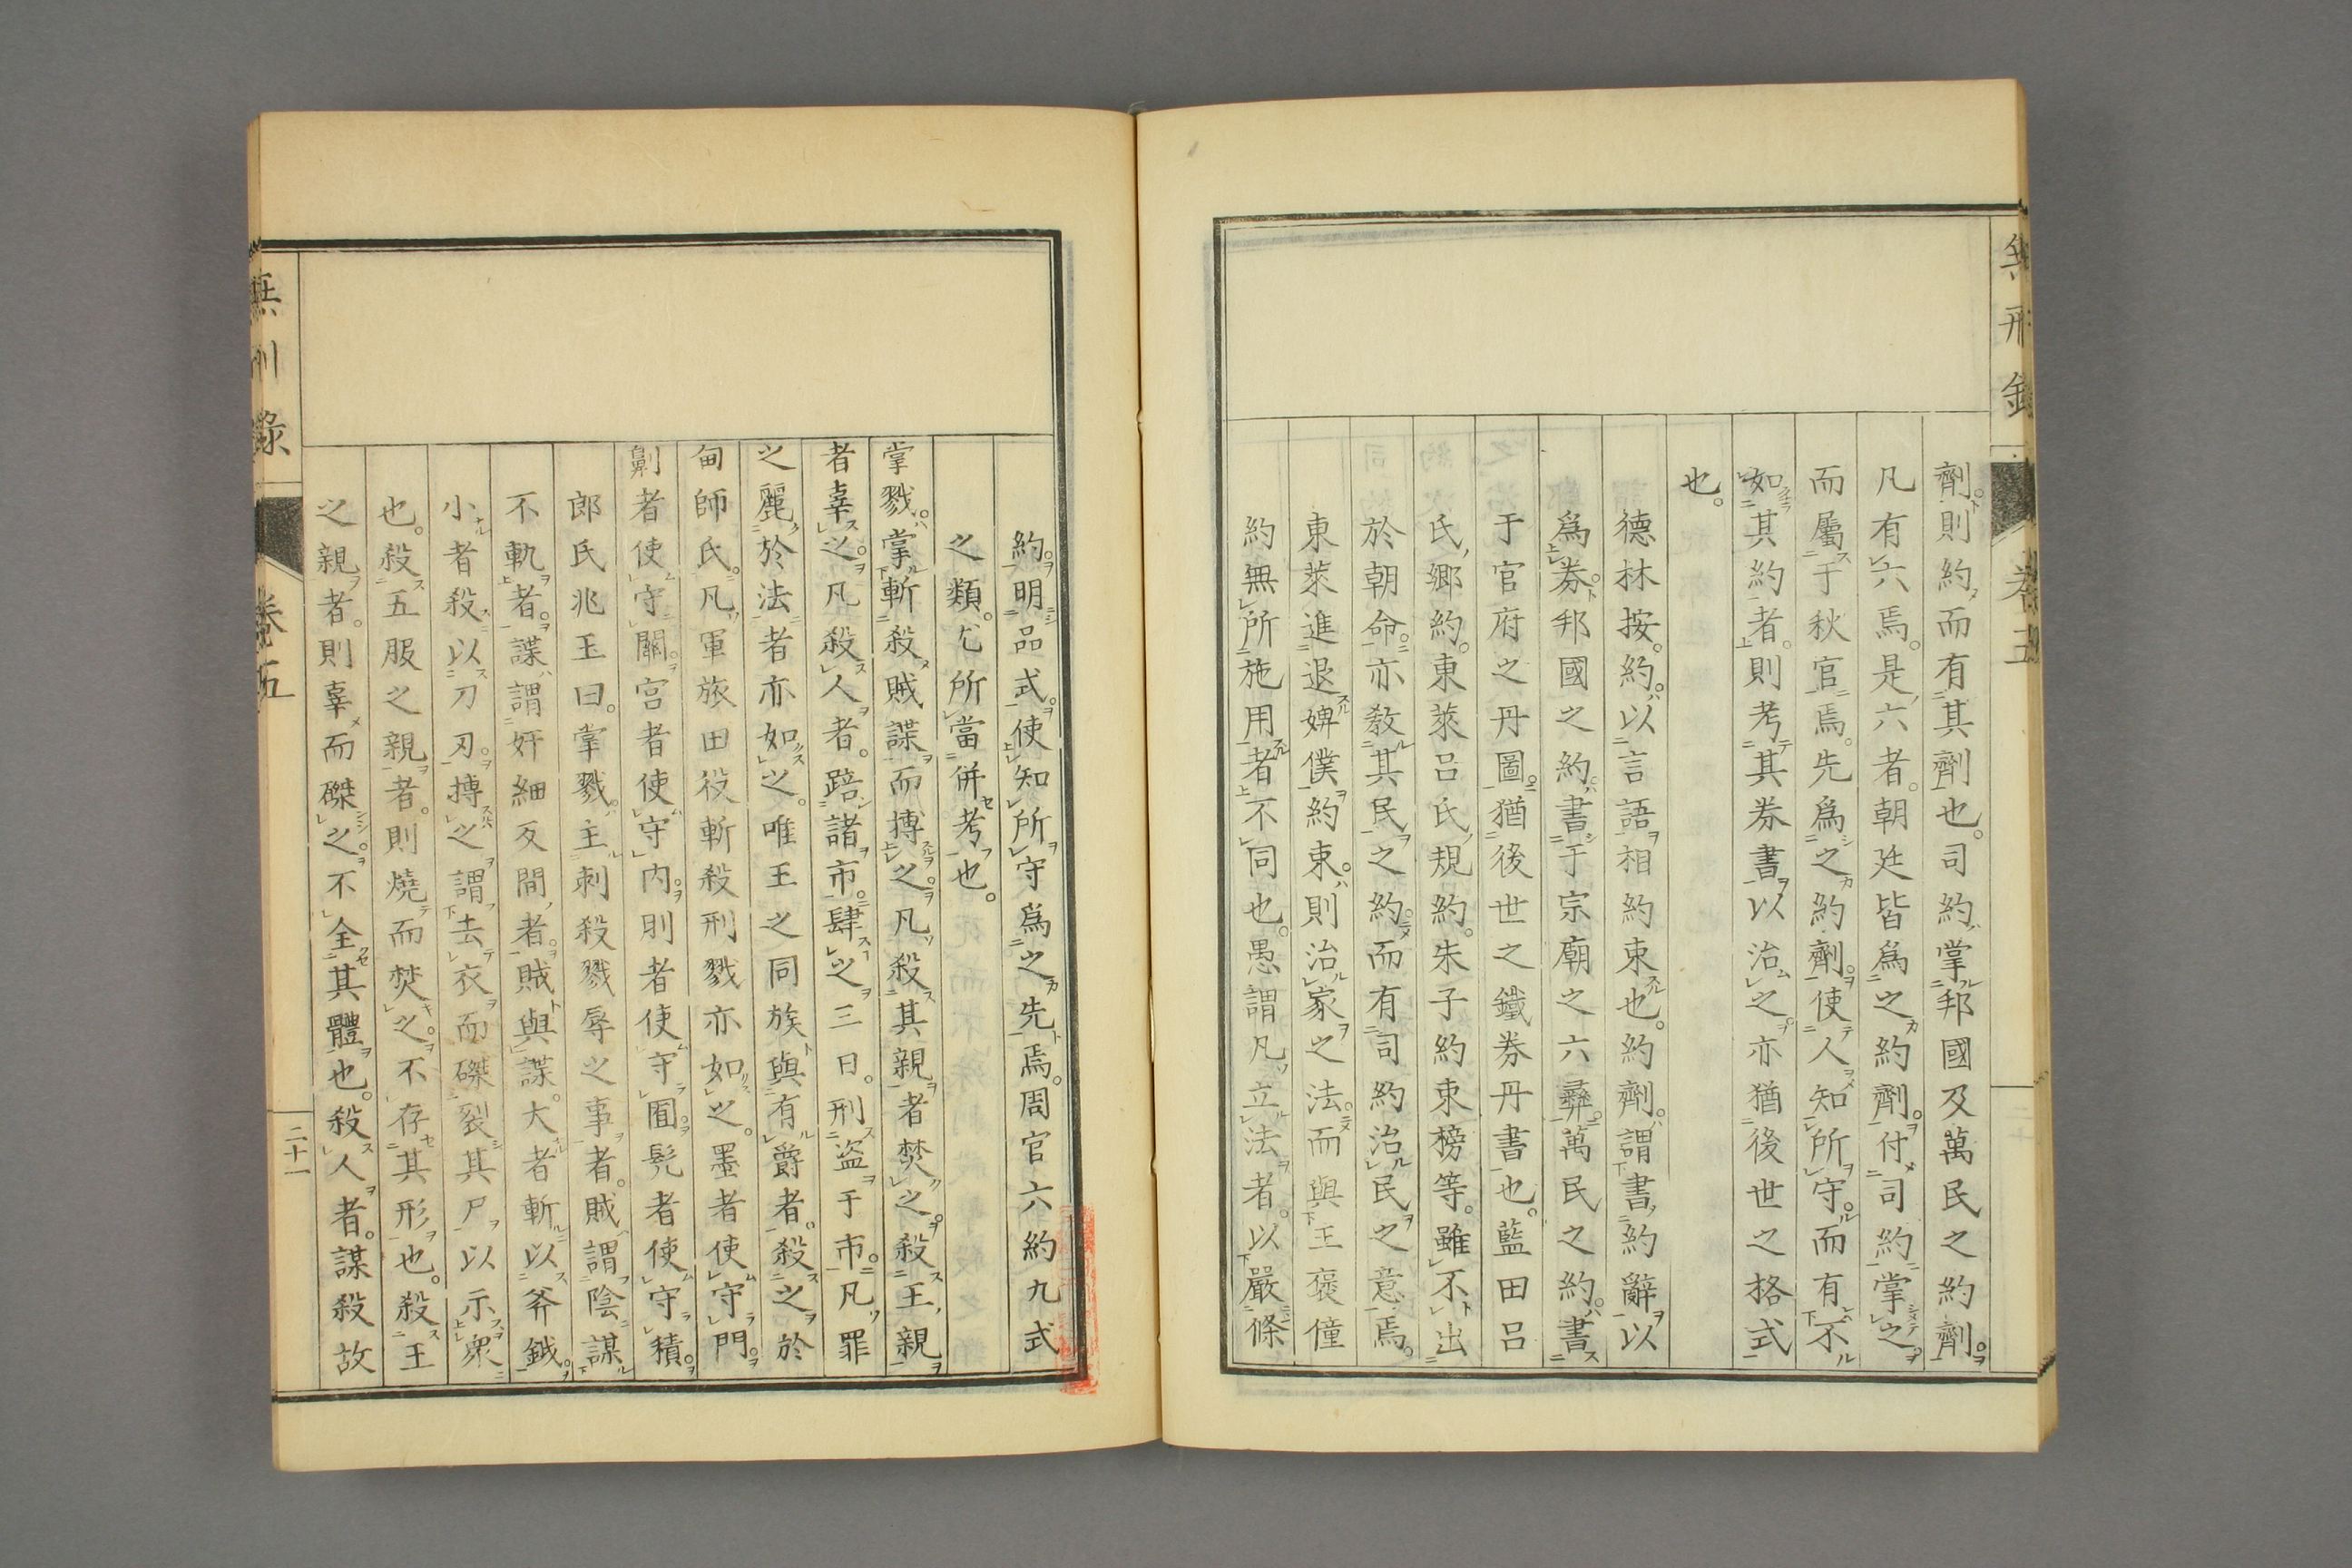 無刑錄
卷五
劑則約而有其劑也。司約掌邦國及萬民之約劑。
凡有六焉。是六者。朝廷皆爲之約劑。付司約掌之。
而屬于秋官焉。先爲之約劑。使人知所守。而有不
如其約者。則考其券書以治之。亦猶後世之格式
也。
德林按。約。以言語相約束也。約劑。謂書約辭以
爲券。邦國之約。書于宗廟之六彝。萬民之約。書
于官府之丹圖。猶後世之鐵券丹書也。藍田呂
氏鄉約。東萊呂氏規約。朱子約束榜等。雖不出
於朝命。亦教其民之約。而有司約治民之意焉。
東萊進退婢僕約束。則治家之法。而與王褒僮
約無所施用者不同也。愚謂凡立法者。以嚴條
約。明品式。使知所守爲之先焉。周官六約九式
之類。尤所當併考也。
掌戮。掌斬殺賊諜而搏之。凡殺其親者焚之。殺王親
者辜之。凡殺人者。踣諸市。肆之三日。刑盜于市。凡罪
之麗於法者亦如之。唯王之同族與有爵者。殺之於
甸師氏。凡軍旅田役斬殺刑戮亦如之。墨者使守門。
劓者使守關。宮者使守內。刖者使守囿。髡者使守積。
郎氏兆玉曰。掌戮。主刺殺戮辱之事者。賊謂陰謀
不軌者。諜謂奸細反間者。賊與諜。大者斬以斧鉞。
小者殺以刀刃。搏之謂去衣而磔裂其尸以示衆
也。殺五服之親者。則燒而焚之。不存其形也。殺王
之親者。則辜而磔之。不全其體也。殺人者。謀殺故
無刑錄
卷五
二十一